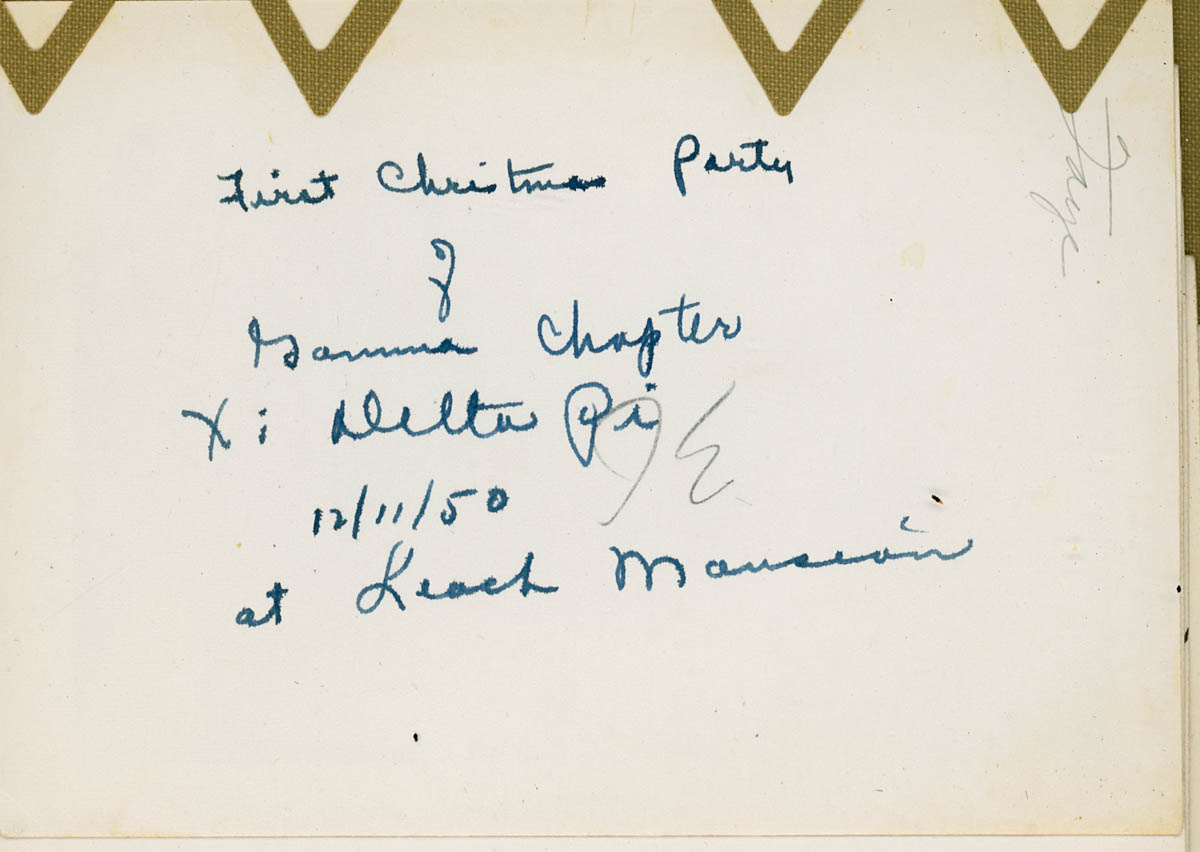 First Christmas Party
of
Gamma Chapter
Xi Delta Pi
12/11/50
at Leach Mansion
Faye